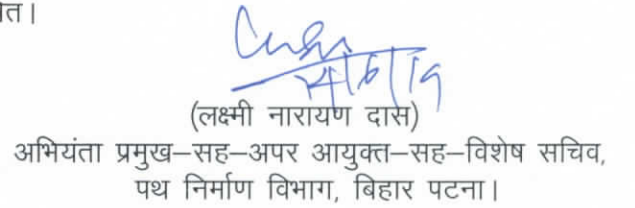 त।
14/6/19
(लक्ष्मी नारायण दास)
अभियंता प्रमुख–सह–अपर आयुक्त–सह–विशेष सचिव,
पथ निर्माण विभाग, बिहार पटना।